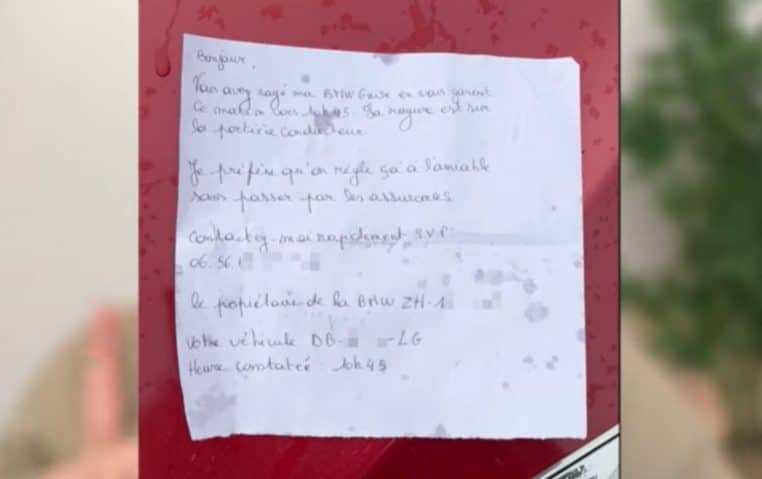 Bonjour,
Vous avez rayé ma BMW Grise en vous garant
Ce matin vers 10h45. La rayure est sur
la portière conducteur
Je préfère qu'on règle ça à l'amiable
sans passer par les assurances
Contactez-moi rapidement S.V.P.
06.56.
Le propiétaire de la BMW ZH-1
Votre véhicule DB- -LG
Heure constatée : 10h45